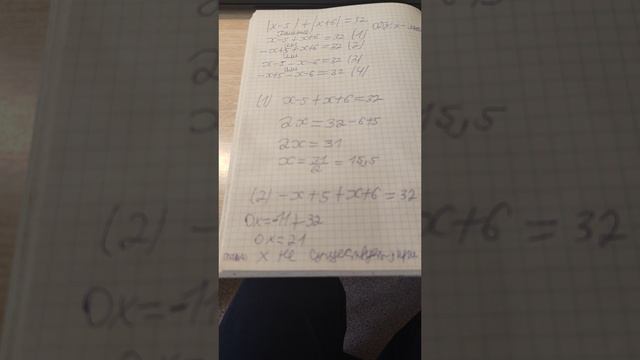 |x-5|+|x+6|=32
x-5+x+6=32 (1)
или
-x+5+x+6=32 (2)
или
x-5-x-6=32 (3)
или
-x+5-x-6=32 (4)
(1) x-5+x+6=32
2x=32-6+5
2x=31
x=31/2=15,5
(2) -x+5+x+6=32
0x=-11+32
0x=21
x не существует